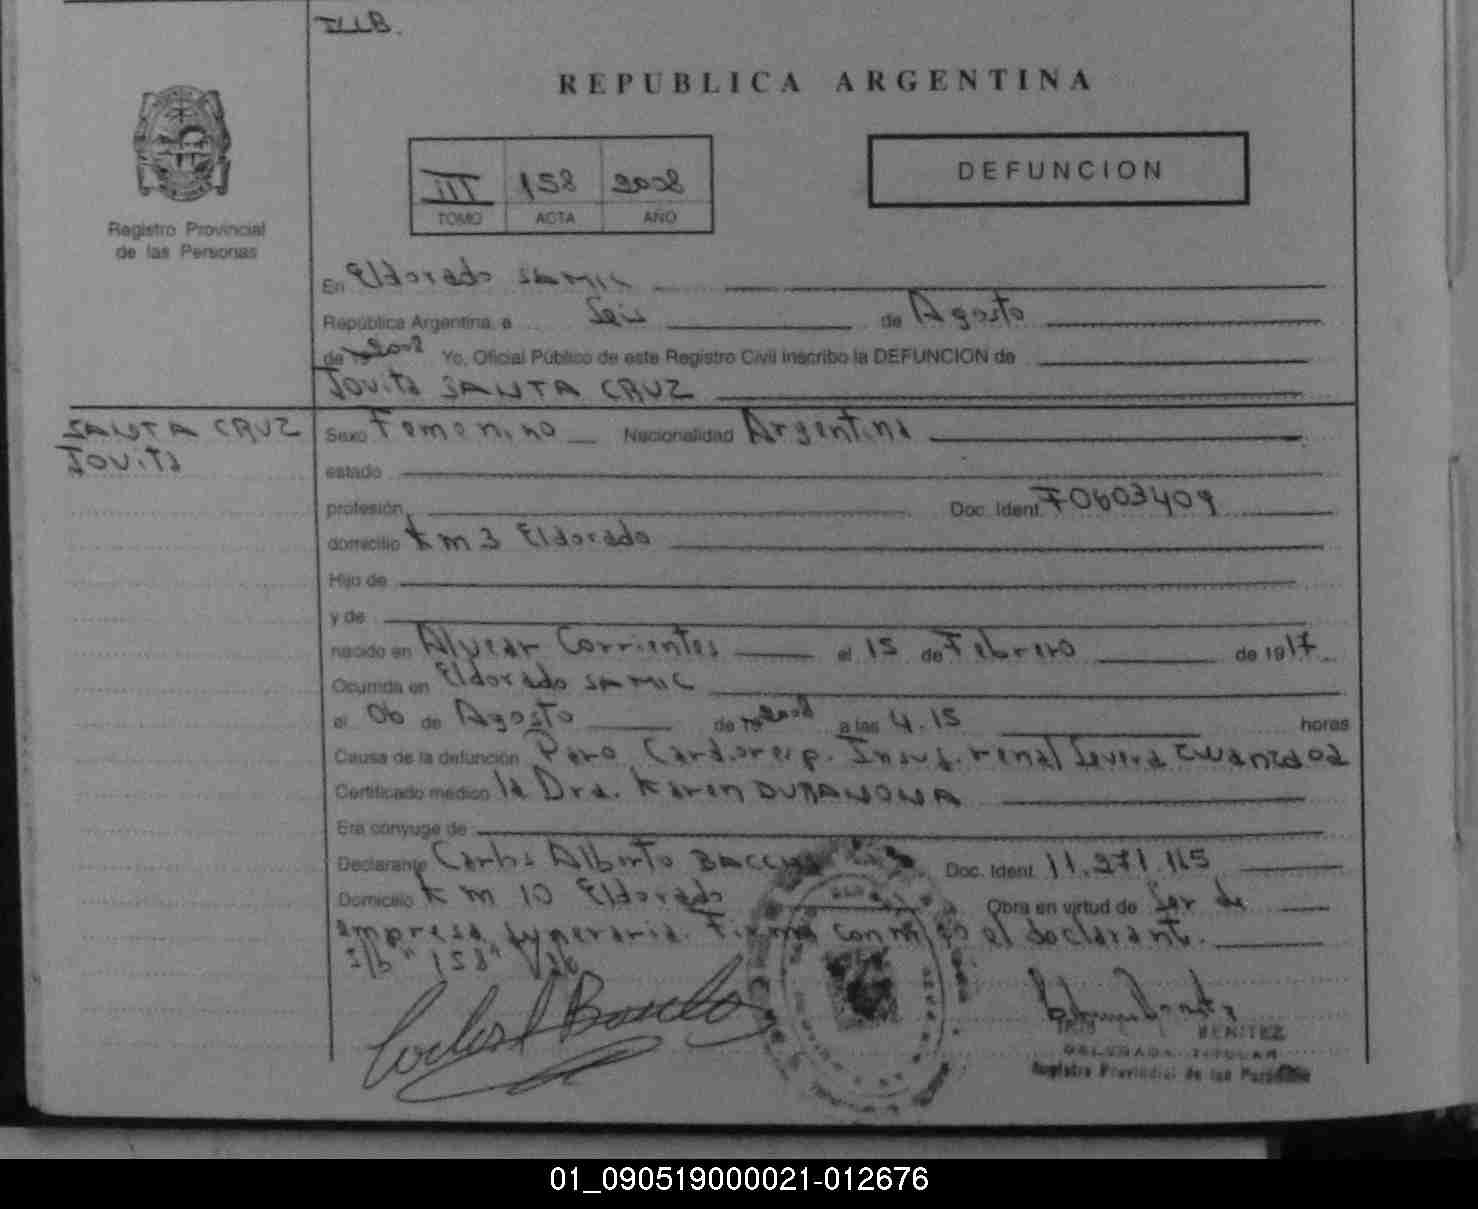 REPUBLICA ARGENTINA
III 158 2008
TOMO ACTA AÑO
DEFUNCION
Registro Provincial
de las Personas
En Eldorado SAMIC
República Argentina, a Seis de Agosto
de 2008 Yo, Oficial Público de este Registro Civil inscribo la DEFUNCION de
Jovita SANTA CRUZ
SANTA CRUZ
Jovita
Sexo Femenino Nacionalidad Argentina
estado
profesión Doc. Ident. F0603409
domicilio Km 3 Eldorado
Hijo de
y de
nacido en Alvear Corrientes el 15 de Febrero de 1917
Ocurrida en Eldorado SAMIC
el 06 de Agosto de 2008 a las 4.15 horas
Causa de la defunción Paro Cardioresp. Insuf. renal Severa
Certificado médico la Dra. Karen
Era cónyuge de
Declarante Carlos Alberto Doc. Ident. 11.371.115
Domicilio Km 10 Eldorado Obra en virtud de Ser de
empresa funeraria. Firma conmigo el declarante.
"158"
BENITEZ
DELEGADA TITULAR
Registro Provincial de las Personas
01_090519000021-012676